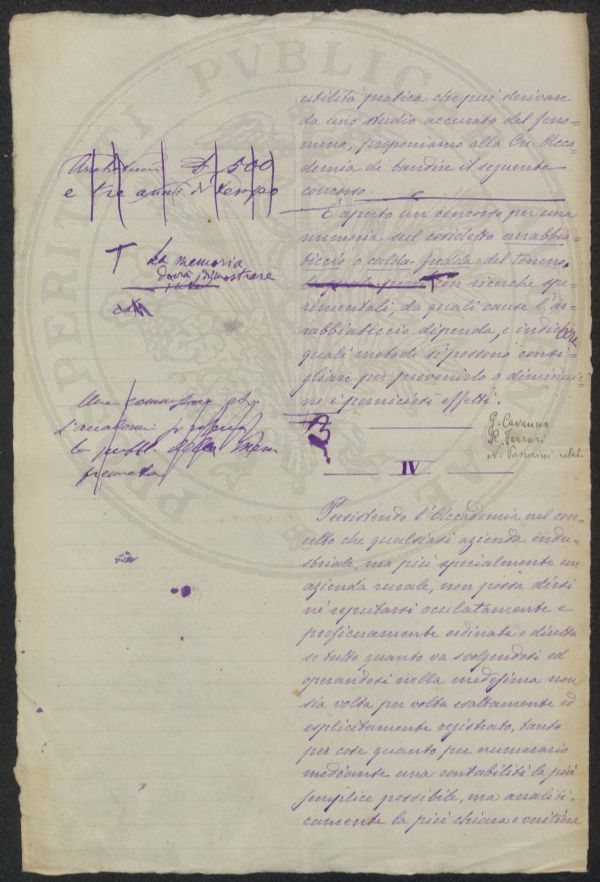 utilità pratica che può derivare
da uno studio accurato del feno=
meno, proponiamo alla On. Acca=
demia di bandire il seguente
concorso.
È aperto un concorso per una
memoria sul cosidetto arrabbia=
ticcio o calda-fredda del terreno.
con ricerche spe=
rimentali, da quali cause l'ar=
rabbiaticcio dipenda, e indicare
quali metodi si possono consi=
gliare per prevenirlo o diminuir=
ne i perniciosi effetti.
£ 500
e tre anni di tempo
T La memoria
dovrà dimostrare
Una commissione
G. Cavanna
R. Ferrari
N. Passerini relat.
IV
Persistendo l'Accademia nel con=
cetto che qualsiasi azienda indu=
striale, ma più specialmente un
azienda rurale, non possa dirsi
nè reputarsi oculatamente e
proficuamente ordinata e diretta
se tutto quanto va svolgendosi ed
operandosi nella medesima non
sia volta per volta esattamente ed
esplicitamente registrato, tanto
per cose quanto per numerario
mediante una contabilità la più
semplice possibile, ma analiti=
camente la più chiara e veritiera